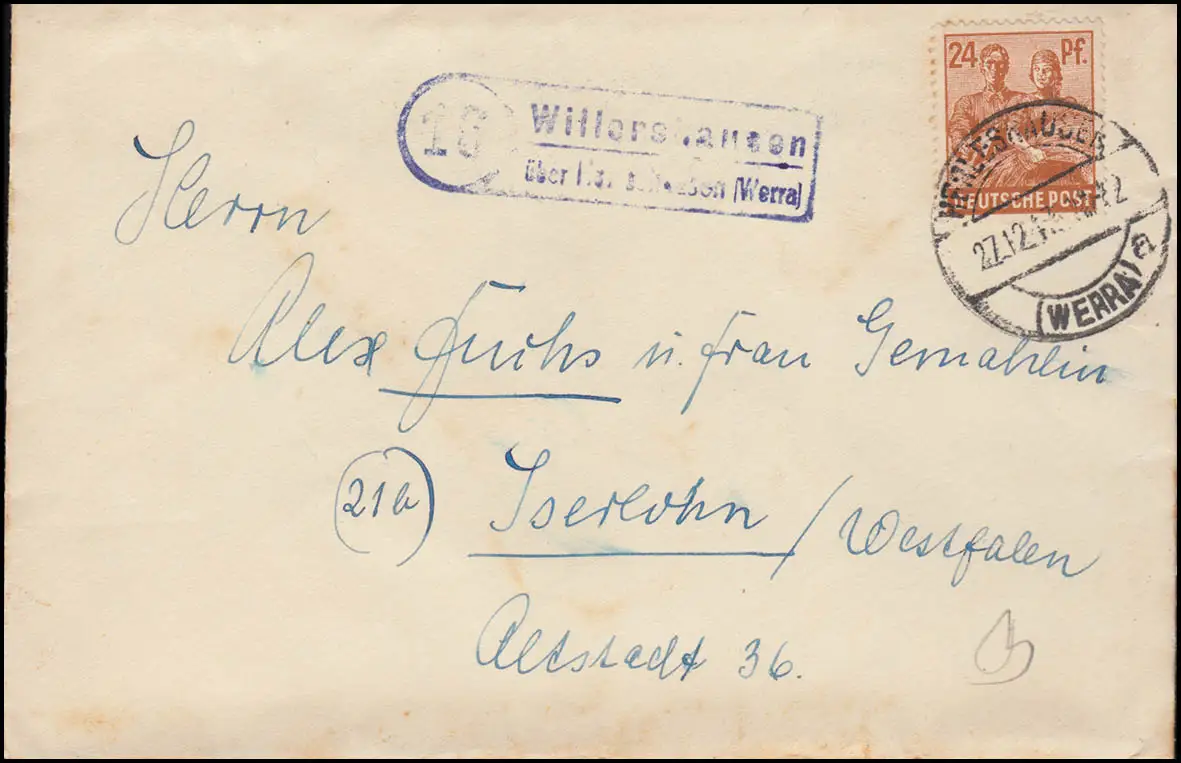 24 Pf.
DEUTSCHE POST
HERLESHAUSEN
27.12.4
(WERRA) a
16 Willershausen
über (Werra)
Herrn
Alex Fuchs u. Frau Gemahlin
(21b) Iserlohn / Westfalen
Altstadt 36.